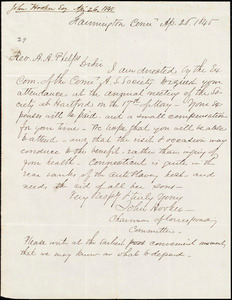 John Hooker Esq. Ap. 26, 1845
Farmington Connt Ap. 25th 1845
29
Rev. A. A. Phelps,
Dr Sir
I am directed by the Ex
Com. of the Connt A. S. Society to request your
attendance at the annual meeting of the Soci
ety at Hartford on the 17th of May. Your ex
penses will be paid and a small compensation
for your time. We hope that you will be able
to attend - and that the visit & occasion may
conduce to the benefit rather than injury of
your health. Connecticut is quite in the
rear ranks of the anti Slavery host and
needs the aid of all her sons
Very Respy & truly yours
John Hooker
Chairman of Correspondg
Committee.
Please write at the earliest convenient moment,
that we may know on what to depend.